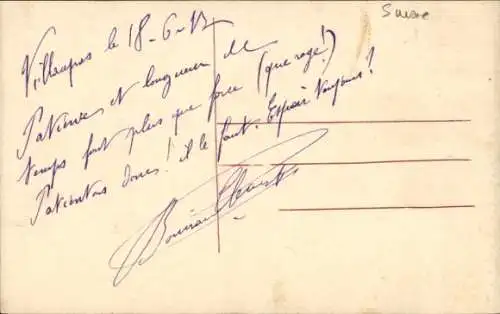 Suisse
le 18-6-17
Patience et longueur de
temps font plus que force (que rage!)
Patientons donc! il le faut. Espoir toujours!